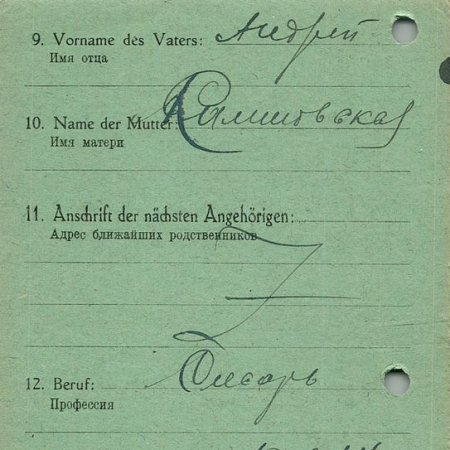 9. Vorname des Vaters: Андрей
Имя отца
10. Name der Mutter:
Имя матери
11. Anschrift der nächsten Angehörigen:
Адрес ближайших родственников
12. Beruf: Слесарь
Профессия